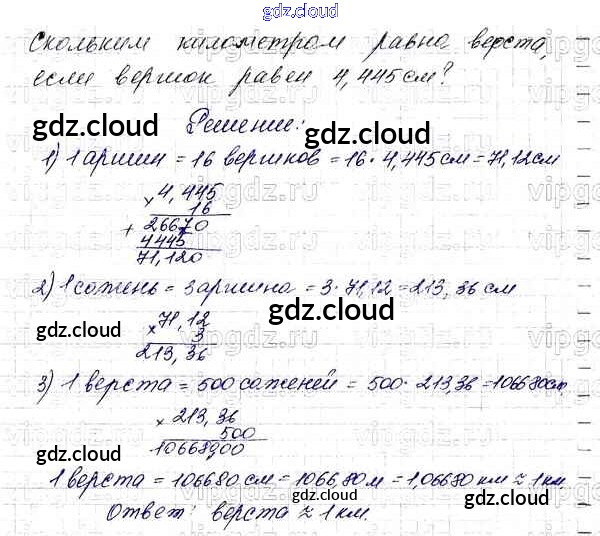 gdz.cloud
Скольким километрам равна верста,
если вершок равен 4,445 см?
gdz.cloud
Решение:
gdz.cloud
1) 1 аршин = 16 вершков = 16 · 4,445 см = 71,12 см
× 4,445
16
+ 26670
4445
71,120
2) 1 сажень = 3 аршина = 3 · 71,12 = 213,36 см
gdz.cloud
gdz.cloud
× 71,12
3
213,36
3) 1 верста = 500 саженей = 500 · 213,36 = 106680 см.
× 213,36
500
106680,00
gdz.cloud
gdz.cloud
1 верста = 106680 см = 1066,80 м = 1,06680 км ≈ 1 км.
gdz.cloud
gdz.cloud
Ответ: верста ≈ 1 км.